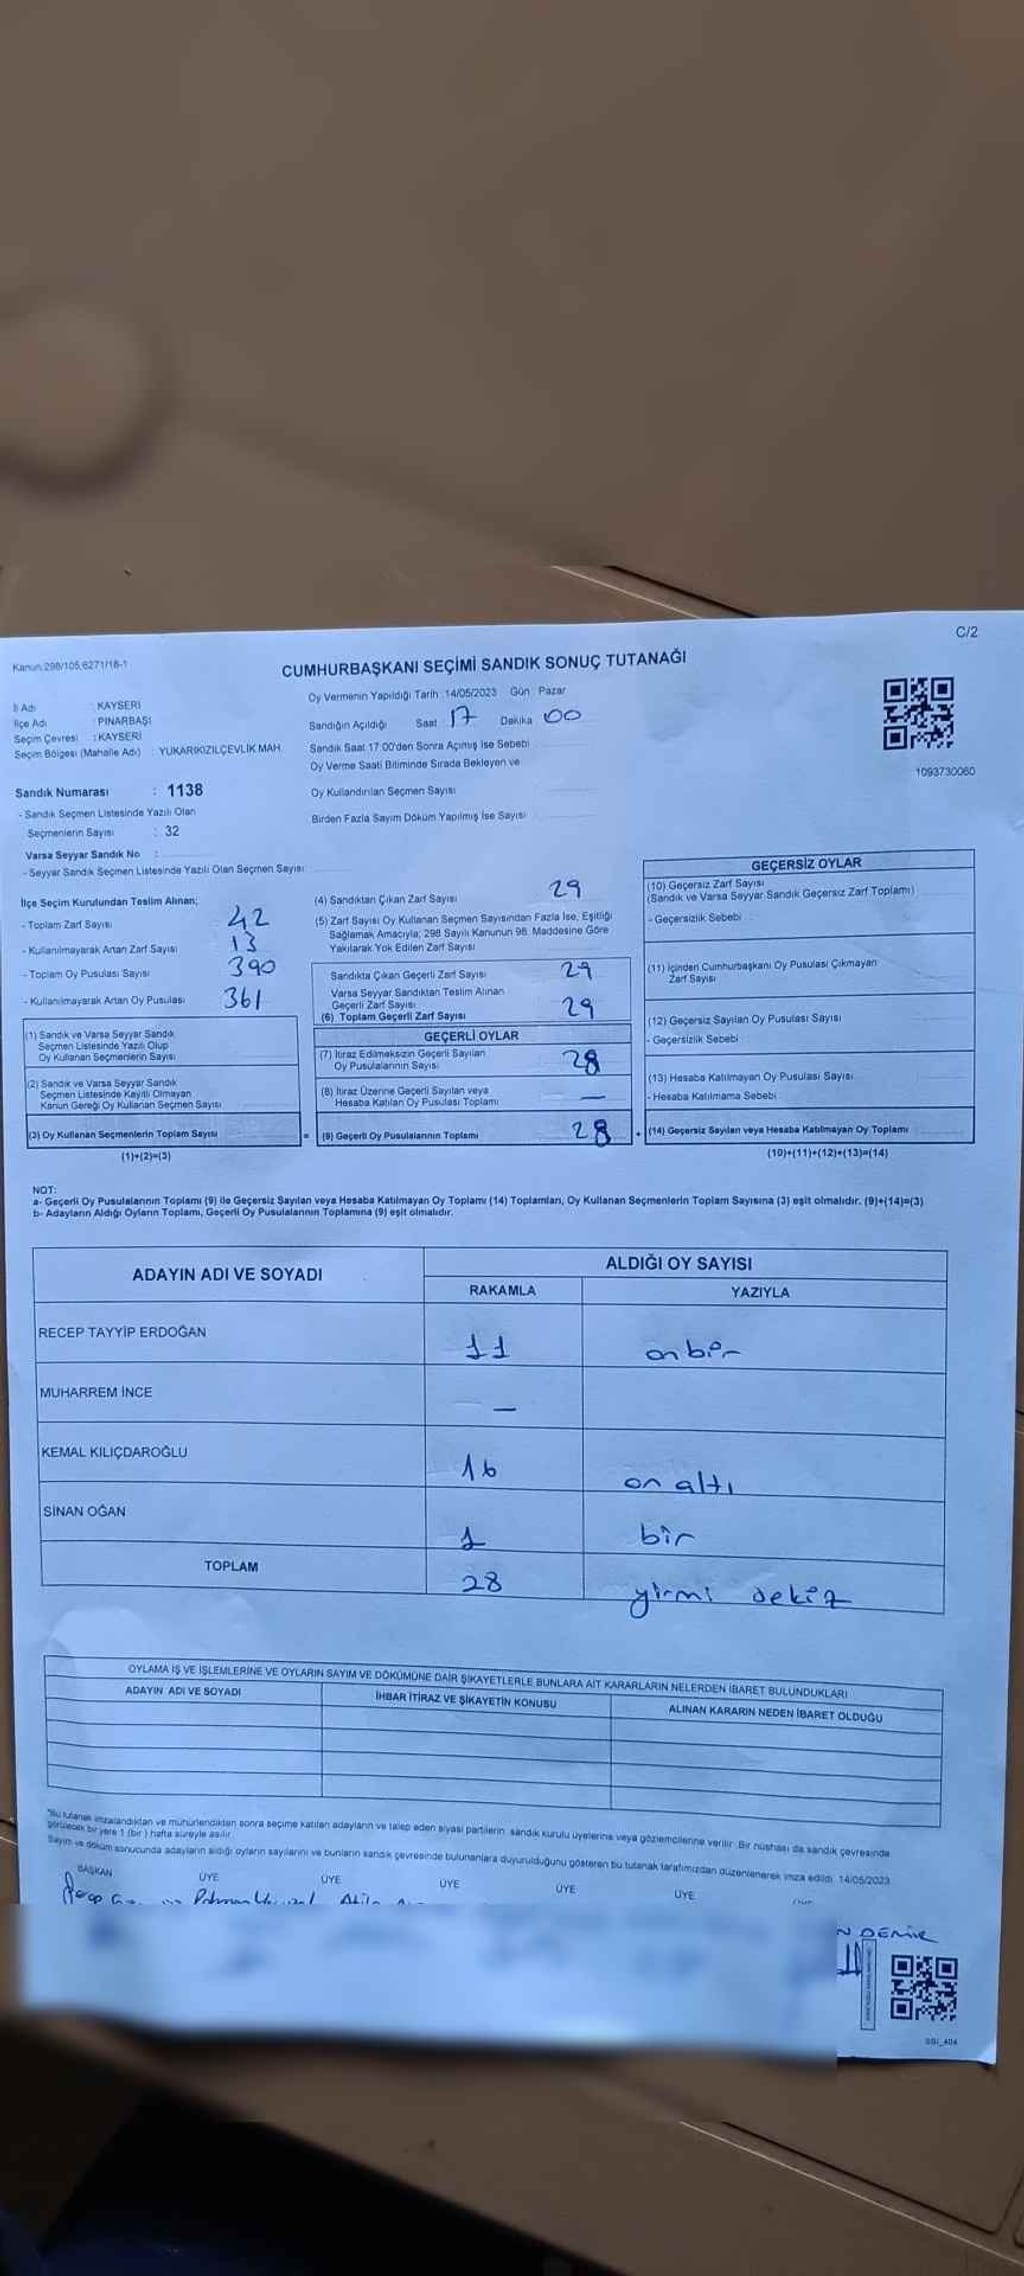 C/2
Kanun:298/105,6271/18-1
CUMHURBAŞKANI SEÇİMİ SANDIK SONUÇ TUTANAĞI
İl Adı : KAYSERİ
İlçe Adı : PINARBAŞI
Seçim Çevresi : KAYSERİ
Seçim Bölgesi (Mahalle Adı) : YUKARIKIZILÇEVLİK MAH.
Oy Vermenin Yapıldığı Tarih :14/05/2023 Gün : Pazar
Sandığın Açıldığı Saat 17 Dakika 00
Sandık Saat 17:00'den Sonra Açılmış İse Sebebi
Oy Verme Saati Bitiminde Sırada Bekleyen ve
Oy Kullandırılan Seçmen Sayısı
Birden Fazla Sayım Döküm Yapılmış İse Sayısı
1093730060
Sandık Numarası : 1138
- Sandık Seçmen Listesinde Yazılı Olan
Seçmenlerin Sayısı : 32
Varsa Seyyar Sandık No :
- Seyyar Sandık Seçmen Listesinde Yazılı Olan Seçmen Sayısı
İlçe Seçim Kurulundan Teslim Alınan;
- Toplam Zarf Sayısı 42
- Kullanılmayarak Artan Zarf Sayısı 13
- Toplam Oy Pusulası Sayısı 390
- Kullanılmayarak Artan Oy Pusulası 361
(1) Sandık ve Varsa Seyyar Sandık
Seçmen Listesinde Yazılı Olup
Oy Kullanan Seçmenlerin Sayısı
(2) Sandık ve Varsa Seyyar Sandık
Seçmen Listesinde Kayıtlı Olmayan
Kanun Gereği Oy Kullanan Seçmen Sayısı
(3) Oy Kullanan Seçmenlerin Toplam Sayısı
(1)+(2)=(3)
(4) Sandıktan Çıkan Zarf Sayısı 29
(5) Zarf Sayısı Oy Kullanan Seçmen Sayısından Fazla İse, Eşitliği
Sağlamak Amacıyla; 298 Sayılı Kanunun 98. Maddesine Göre
Yakılarak Yok Edilen Zarf Sayısı
Sandıkta Çıkan Geçerli Zarf Sayısı 29
Varsa Seyyar Sandıktan Teslim Alınan
Geçerli Zarf Sayısı
(6) Toplam Geçerli Zarf Sayısı 29
GEÇERLİ OYLAR
(7) İtiraz Edilmeksizin Geçerli Sayılan
Oy Pusulalarının Sayısı 28
(8) İtiraz Üzerine Geçerli Sayılan veya
Hesaba Katılan Oy Pusulası Toplamı —
= (9) Geçerli Oy Pusulalarının Toplamı 28
GEÇERSİZ OYLAR
(10) Geçersiz Zarf Sayısı
(Sandık ve Varsa Seyyar Sandık Geçersiz Zarf Toplamı)
- Geçersizlik Sebebi
(11) İçinden Cumhurbaşkanı Oy Pusulası Çıkmayan
Zarf Sayısı
(12) Geçersiz Sayılan Oy Pusulası Sayısı
- Geçersizlik Sebebi
(13) Hesaba Katılmayan Oy Pusulası Sayısı
- Hesaba Katılmama Sebebi
+ (14) Geçersiz Sayılan veya Hesaba Katılmayan Oy Toplamı
(10)+(11)+(12)+(13)=(14)
NOT:
a- Geçerli Oy Pusulalarının Toplamı (9) ile Geçersiz Sayılan veya Hesaba Katılmayan Oy Toplamı (14) Toplamları, Oy Kullanan Seçmenlerin Toplam Sayısına (3) eşit olmalıdır. (9)+(14)=(3)
b- Adayların Aldığı Oyların Toplamı, Geçerli Oy Pusulalarının Toplamına (9) eşit olmalıdır.
ADAYIN ADI VE SOYADI
ALDIĞI OY SAYISI
RAKAMLA YAZIYLA
RECEP TAYYİP ERDOĞAN 11 on bir
MUHARREM İNCE —
KEMAL KILIÇDAROĞLU 16 on altı
SİNAN OĞAN 1 bir
TOPLAM 28 yirmi sekiz
OYLAMA İŞ VE İŞLEMLERİNE VE OYLARIN SAYIM VE DÖKÜMÜNE DAİR ŞİKAYETLERLE BUNLARA AİT KARARLARIN NELERDEN İBARET BULUNDUKLARI
ADAYIN ADI VE SOYADI İHBAR İTİRAZ VE ŞİKAYETİN KONUSU ALINAN KARARIN NEDEN İBARET OLDUĞU
*Bu tutanak imzalandıktan ve mühürlendikten sonra seçime katılan adayların ve talep eden siyasi partilerin sandık kurulu üyelerine veya gözlemcilerine verilir. Bir nüshası da sandık çevresinde
görülecek bir yere 1 (bir) hafta süreyle asılır.
Sayım ve döküm sonucunda adayların aldığı oyların sayılarını ve bunların sandık çevresinde bulunanlara duyurulduğunu gösteren bu tutanak tarafımızdan düzenlenerek imza edildi. 14/05/2023
BAŞKAN ÜYE ÜYE ÜYE ÜYE ÜYE
DEMİR
SSI_404